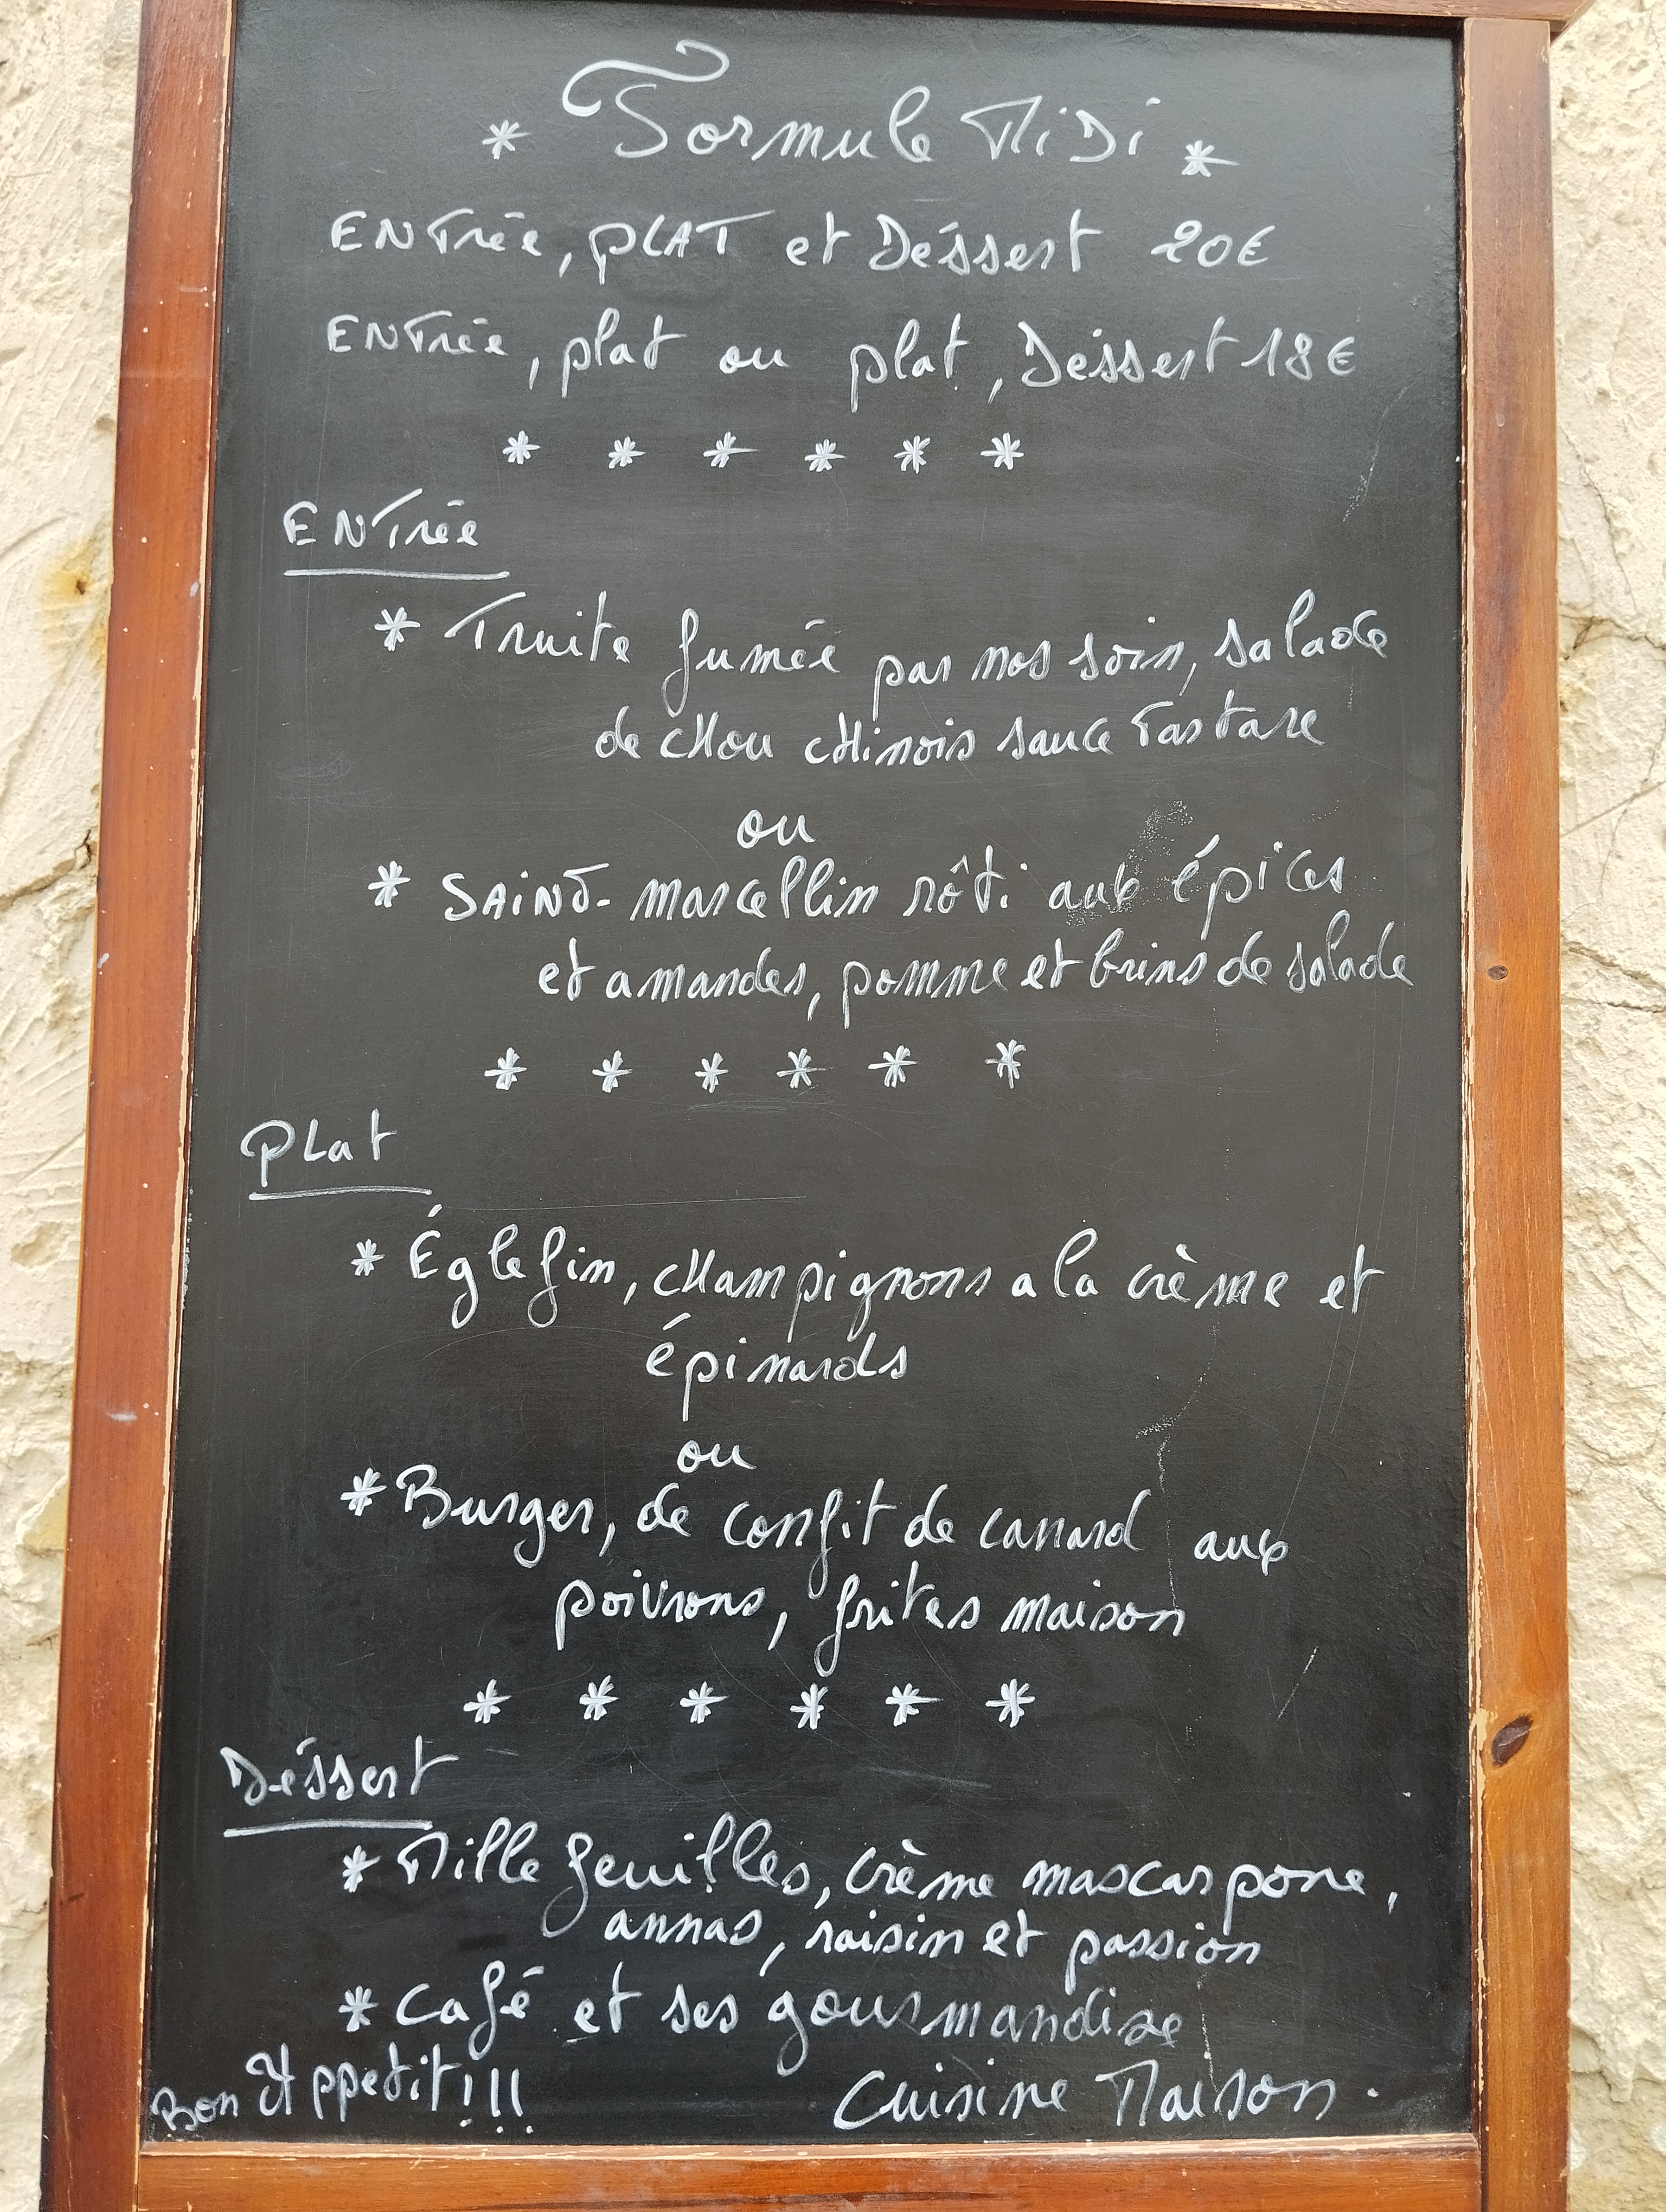 * Formule Midi *
Entrée, PLAT et Déssert 20€
Entrée, plat ou plat, Déssert 18€
* * * * * *
Entrée
* Truite fumée par nos soin, salade
de chou chinois sauce Tartare
ou
* SAINT-marcellin rôti aux épices
et amandes, pomme et brins de salade
* * * * * *
PLat
* Églefin, champignons a la crème et
épinards
ou
* Burger, de confit de canard aux
poivrons, frites maison
* * * * * *
Déssert
* Mille feuilles, crème mascarpone,
annas, raisin et passion
* Café et ses gourmandise
Bon Appetit!!!
Cuisine Maison.